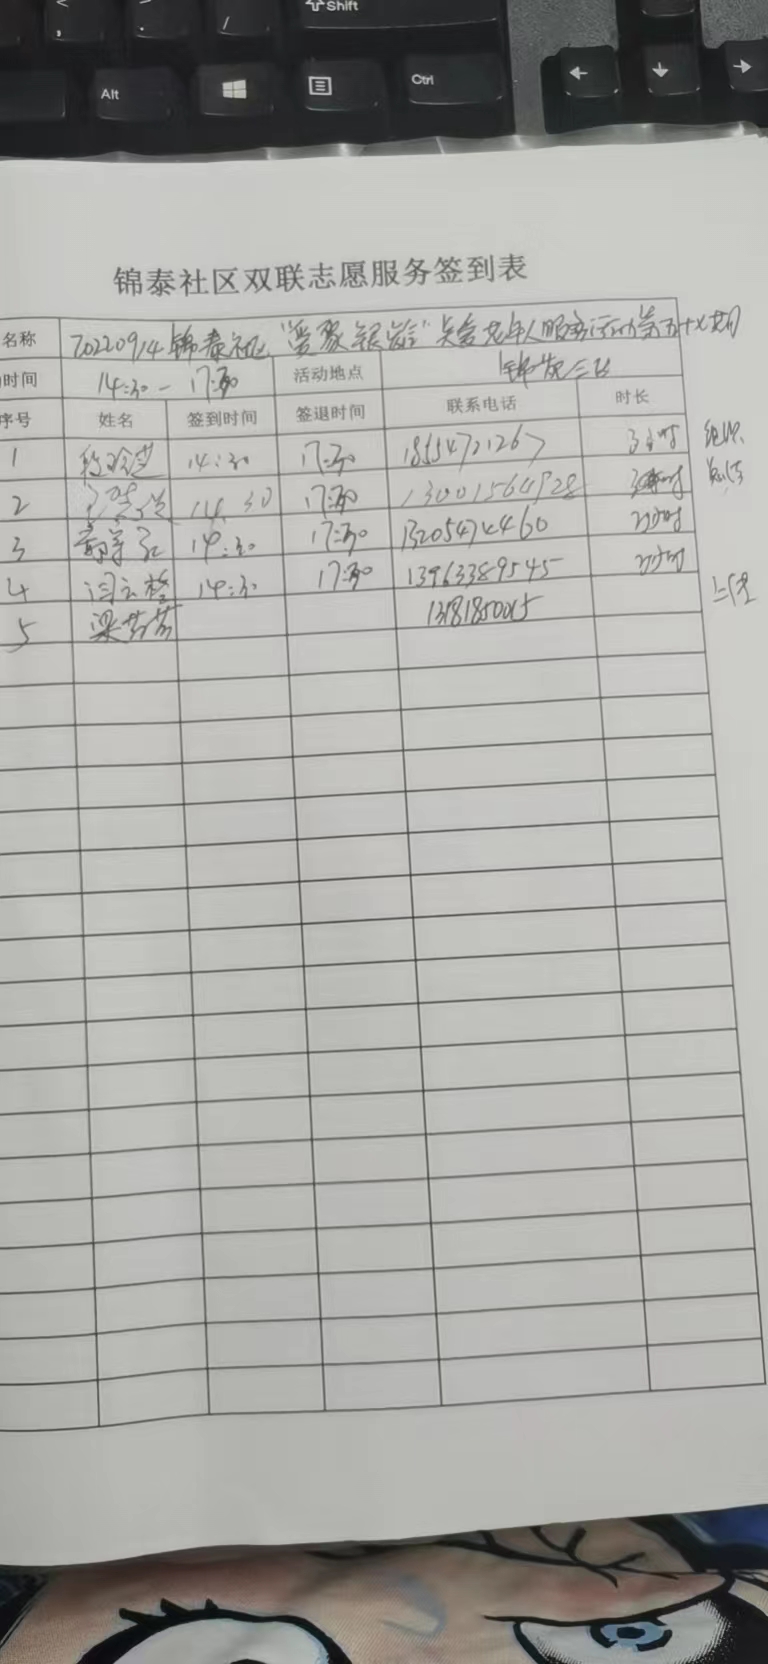 Shift
Alt
Ctrl
锦泰社区双联志愿服务签到表
名称 20220914锦泰社区"爱聚银龄"关爱老年人服务行动第五十七期
时间 14:30-17:30 活动地点
序号 姓名 签到时间 签退时间 联系电话 时长
1 14:30 17:30 18554721267 3小时
2 14:30 17:30 13001564928 3小时
3 14:30 17:30 13205474460 2小时
4 闫 14:30 17:30 13963389545 2小时
5 梁芳芳 13181850015